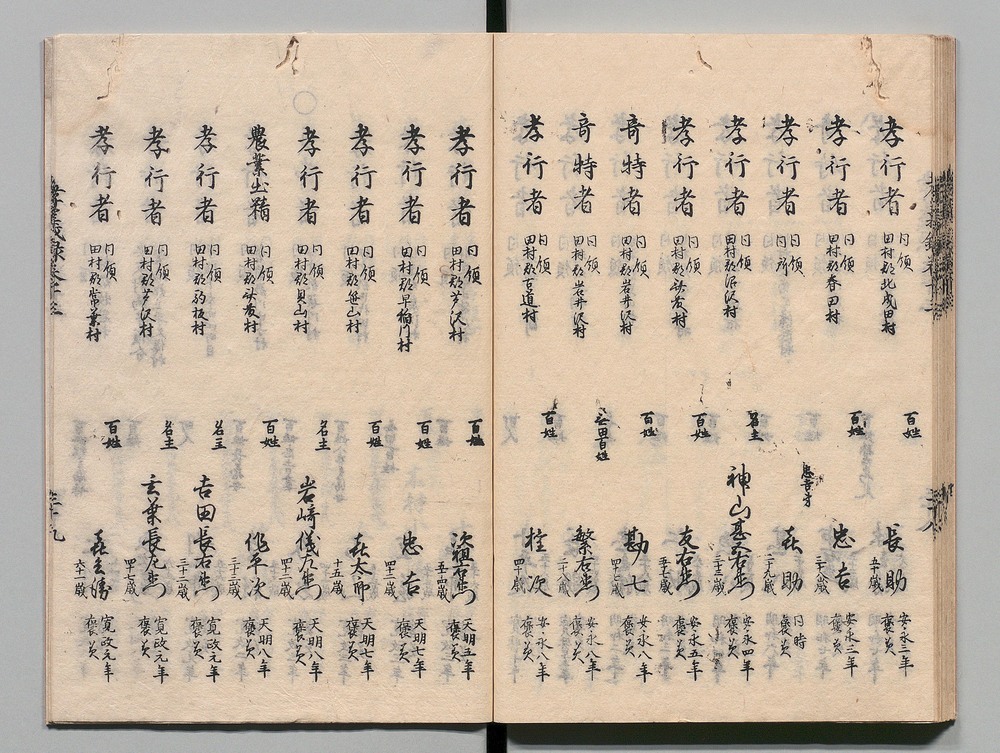 孝行者 同領 田村郡北成田村 百姓 長助 五十歳 安永三年 褒美
孝行者 同領 田村郡春田村 百姓 忠吉 三十八歳 安永三年 褒美
孝行者 同領 同所 忠吉弟 喜助 二十九歳 同時 褒美
孝行者 同領 田村郡沼沢村 名主 神山甚右衛門 三十三歳 安永四年 褒美
孝行者 同領 田村郡 百姓 友右衛門 五十七歳 安永五年 褒美
奇特者 同領 田村郡岩井沢村 百姓 勘七 四十七歳 安永八年 褒美
奇特者 同領 田村郡岩井沢村 百姓 繁右衛門 二十八歳 安永八年 褒美
孝行者 同領 田村郡古道村 百姓 権次 四十歳 安永八年 褒美
孝行者 同領 田村郡芦沢村 百姓 五十四歳 天明五年 褒美
孝行者 同領 田村郡早稲川村 百姓 忠吉 四十二歳 天明七年 褒美
孝行者 同領 田村郡笹山村 百姓 喜太郎 十五歳 天明七年 褒美
孝行者 同領 田村郡貝山村 名主 岩崎儀左衛門 四十二歳 天明八年 褒美
農業出精 同領 田村郡 百姓 作平次 三十三歳 天明八年 褒美
孝行者 同領 田村郡駒板村 名主 吉田長右衛門 三十三歳 寛政元年 褒美
孝行者 同領 田村郡芦沢村 名主 玄葉長左衛門 四十七歳 寛政元年 褒美
孝行者 同領 田村郡常葉村 百姓 六十一歳 寛政元年 褒美